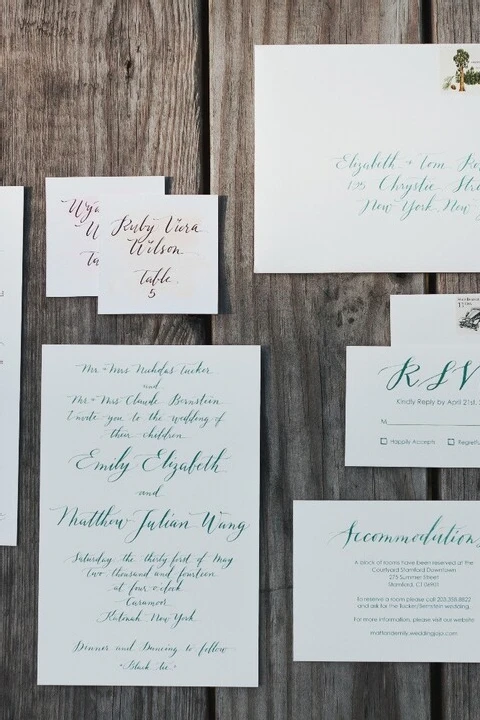 Elizabeth + Tom
195 Chrystie
New York New
Ruby Viera
Wilson
Table
5
Mr + Mrs Nicholas Tucker
and
Mr + Mrs Claude Bernstein
Invite you to the wedding of
their children
Emily Elizabeth
and
Matthew Julian Wang
Saturday the thirty first of May
two thousand and fourteen
at four o'clock
Caramoor
Katonah New York
Dinner and Dancing to follow
Black Tie
RSV
Kindly Reply by April 21st,
M
Happily Accepts
Accommodations
A block of rooms have been reserved at the
Courtyard Stamford Downtown
275 Summer Street
Stamford, Ct 06901
To reserve a room please call 203.358.8822
and ask for the Tucker/Bernstein wedding.
For more information, please visit our website
mattandemily.weddingjojo.com